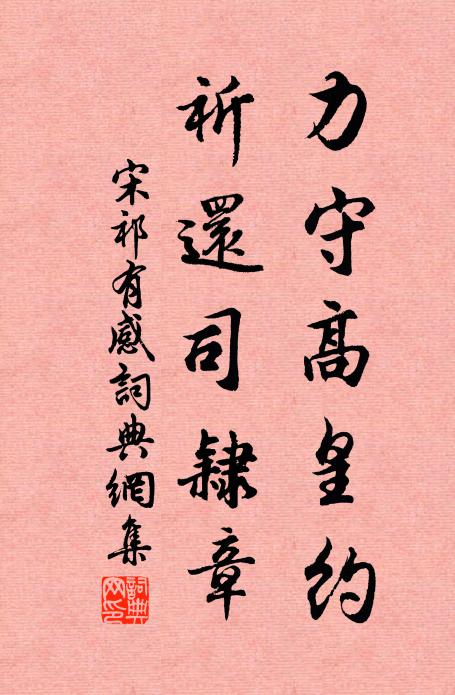 力守高皇約
祈還司隸章
宋祁有感詞典網集
詞典網印